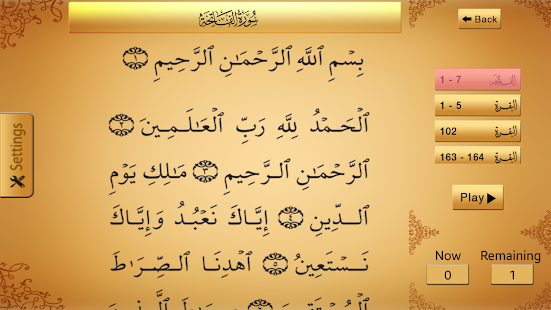 سُورَةُ الفَاتِحَةِ
Back
بِسْمِ ٱللَّهِ ٱلرَّحْمَـٰنِ ٱلرَّحِيمِ ۝١
ٱلْحَمْدُ لِلَّهِ رَبِّ ٱلْعَـٰلَـمِـينَ ۝٢
ٱلرَّحْمَـٰنِ ٱلـرَّحِـيمِ ۝٣ مَـٰلِكِ يَوْمِ
ٱلـدِّينِ ۝٤ إِيَّاكَ نَعْبُدُ وَإِيَّاكَ
نَـسْتَعِينُ ۝٥ ٱهْدِنَـا ٱلـصِّـرَٰطَ
Settings
1 - 7 الفاتحة
1 - 5 البقرة
102 البقرة
163 - 164 البقرة
Play
Now Remaining
0 1